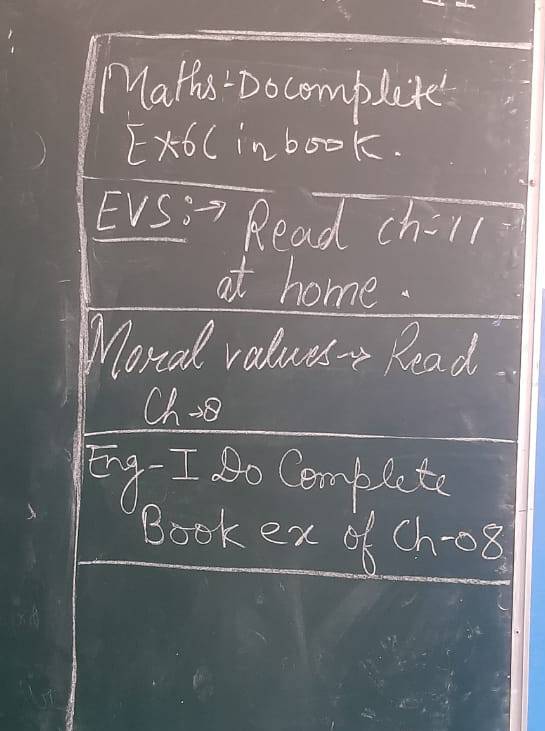 Maths:- Do complete
Ex 6C in book.
EVS:→ Read ch-11
at home.
Moral values→ Read
Ch→8
Eng-I Do Complete
Book ex of Ch-08